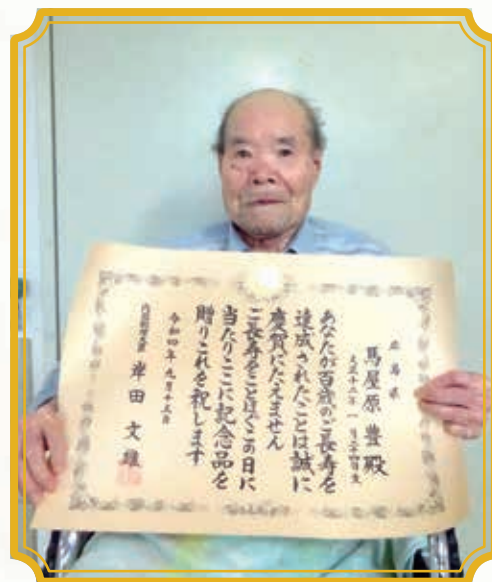 広島県
馬屋原 豊 殿
大正十二年 一月二十四日生
あなたが百歳のご長寿を
達成されたことは誠に
慶賀にたえません
ご長寿をことほぐこの日に
当たりここに記念品を
贈りこれを祝します
令和四年九月十五日
内閣総理大臣 岸田文雄